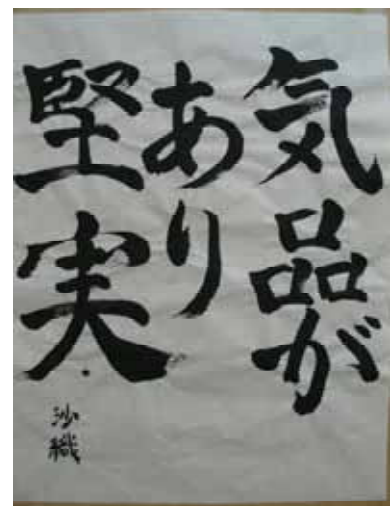 気品が
あり
堅実
沙織